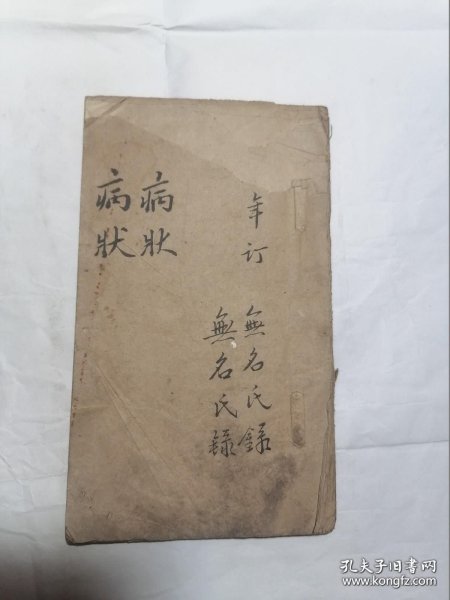 年订 無名氏録
無名氏録
病狀
病狀
孔夫子旧书网
www.kongfz.com